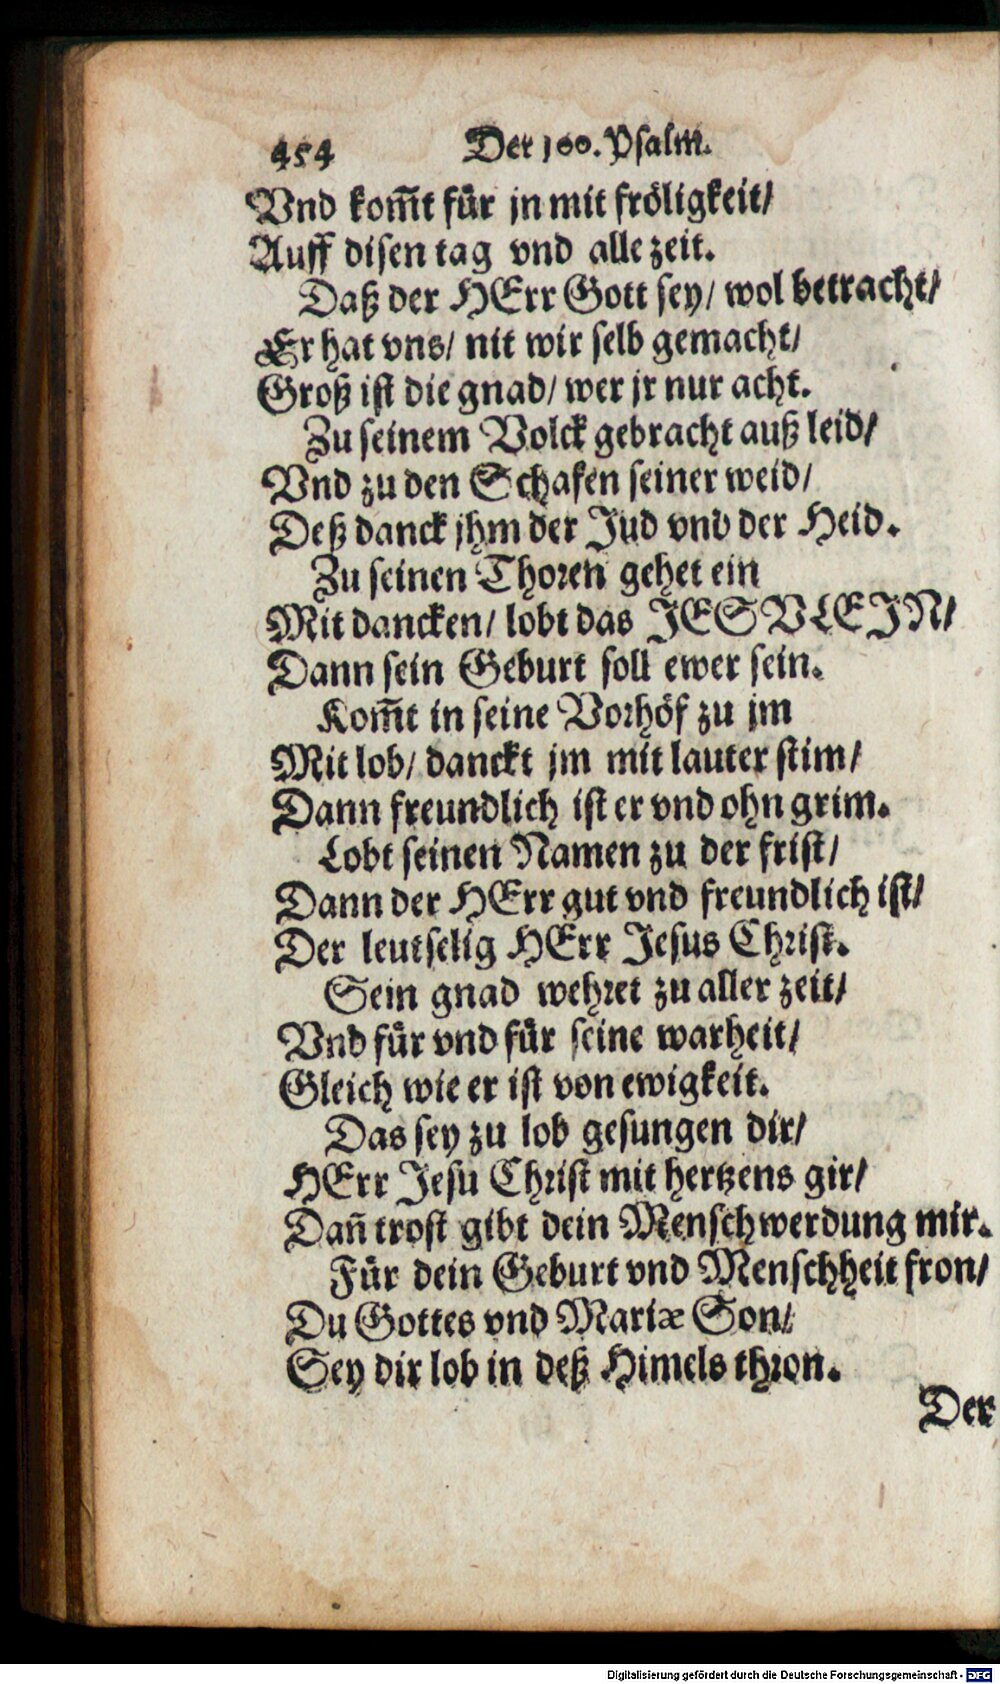 454 Der 100. Psalm.
Vnd kom̃t für jn mit fröligkeit/
Auff disen tag vnd alle zeit.
Daß der HErr Gott sey/ wol betracht/
Er hat vns/ nit wir selb gemacht/
Groß ist die gnad/ wer jr nur acht.
Zu seinem Volck gebracht auß leid/
Vnd zu den Schafen seiner weid/
Deß danck jhm der Jud vnd der Heid.
Zu seinen Thoren gehet ein
Mit dancken/ lobt das JESVLEJN/
Dann sein Geburt soll ewer sein.
Kom̃t in seine Vorhöf zu jm
Mit lob/ danckt jm mit lauter stim/
Dann freundlich ist er vnd ohn grim.
Lobt seinen Namen zu der frist/
Dann der HErr gut vnd freundlich ist/
Der leutselig HErr Jesus Christ.
Sein gnad wehret zu aller zeit/
Vnd für vnd für seine warheit/
Gleich wie er ist von ewigkeit.
Das sey zu lob gesungen dir/
HErr Jesu Christ mit hertzens gir/
Dañ trost gibt dein Menschwerdung mir.
Für dein Geburt vnd Menschheit fron/
Du Gottes vnd Mariæ Son/
Sey dir lob in deß Himels thron.
Der
Digitalisierung gefördert durch die Deutsche Forschungsgemeinschaft - DFG